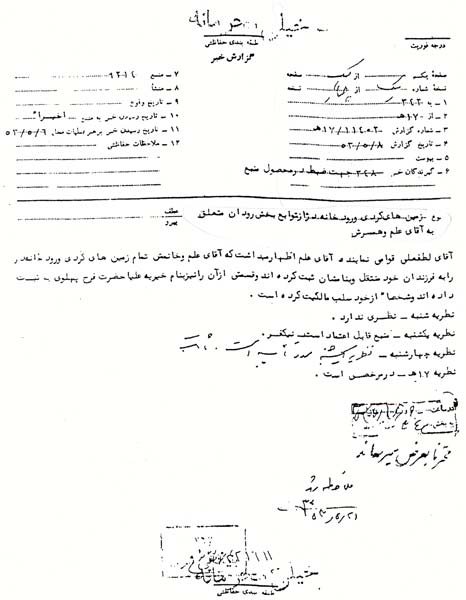 خیلی محرمانه
طبقه بندی حفاظتی
درجه فوریت
گزارش خبر
صفحه یک از یک صفحه
نسخه شماره از نسخه
۱ ـ به ۳۴۳
۲ ـ از ۱۷هـ
۳ ـ شماره گزارش ۱۱۴۰۲/۱۷هـ
۴ ـ تاریخ گزارش ۵۳/۵/۸
۵ ـ پیوست
۶ ـ گیرندگان خبر ۳۴۸ جهت ضبط در محصول منبع
۷ ـ منبع ۶۲۱۴
۸ ـ منشأ
۹ ـ تاریخ وقوع
۱۰ ـ تاریخ رسیدن خبر به منبع اخیرا"
۱۱ ـ تاریخ رسیدن خبر برهبر عملیات محل ۵۳/۵/۶
۱۲ ـ ملاحظات حفاظتی
زمین های کردی و رودخانه دزاز توابع بخش رودان متعلق
به آقای علم و همسرش
عطف
پیرو
آقای لطفعلی قوامی نماینده آقای علم اظهار میداشت که آقای علم و خانمش تمام زمین های کردی و رودخانه دز
را به فرزندان خود منتقل و بنامشان ثبت کرده اند و قسمتی از آن را نیز بنام خیریه علیا حضرت فرح پهلوی به ثبت
داده اند و شخصا" از خود سلب مالکیت کرده است .
نظریه شنبه ـ نظری ندارد .
نظریه یکشنبه ـ منبع قابل اعتماد است. نیکفر
نظریه چهارشنبه ـ نظریه یکشنبه مورد تأیید است .
نظریه ۱۷هـ ـ در مرخصی است .
محترما بعرض میرساند
ملاحظه شد
خیلی محرمانه
طبقه بندی حفاظتی